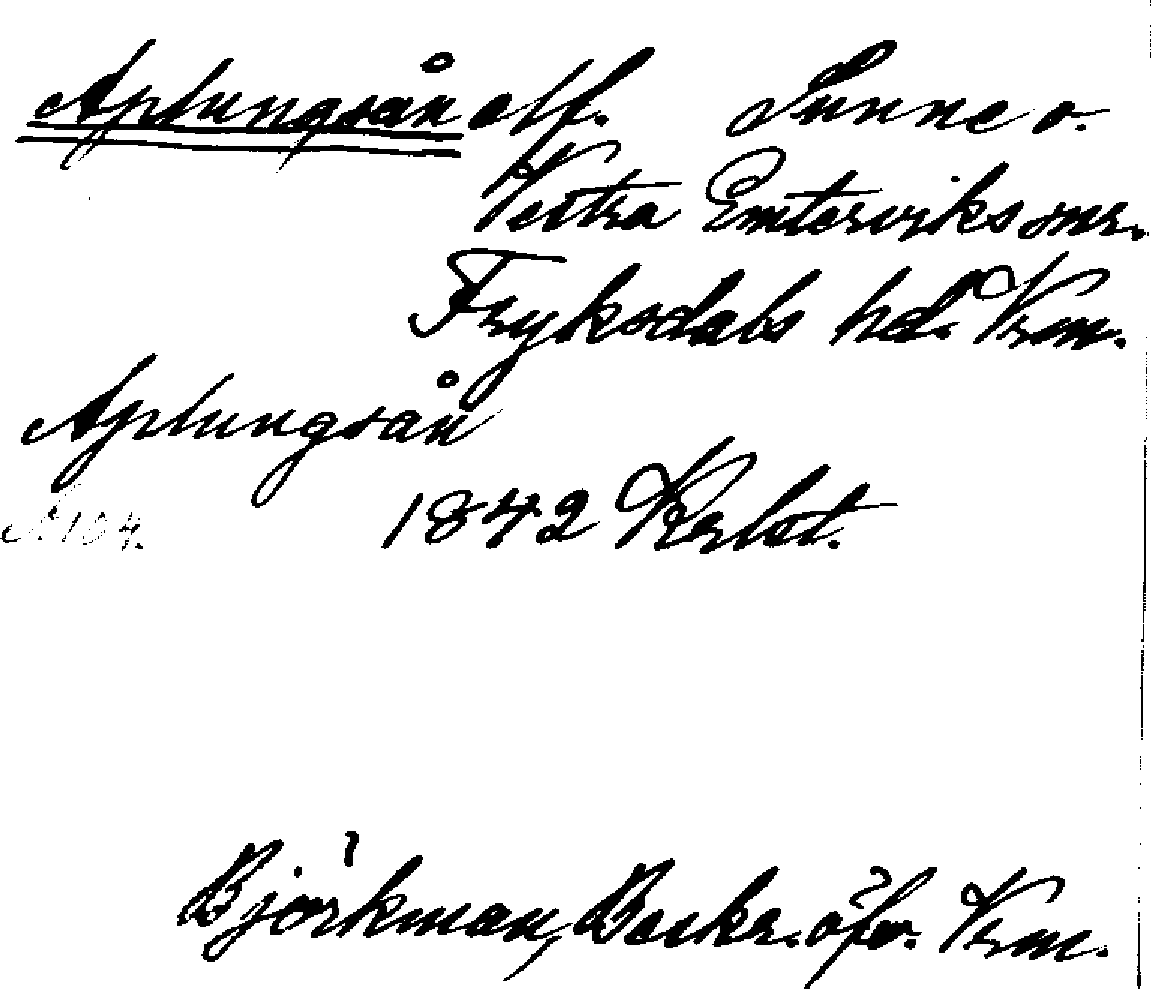 Aplungsån elf. Sunne o.
Vestra Emterviks snr.
Fryksdals hd. Vrm.
Aplungsån
N 104. 1842
Björkman, Beskr. öfv. Vrm.